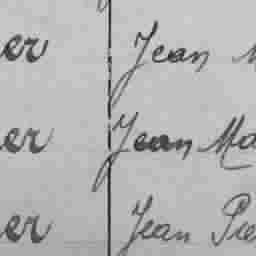 er Jean
er Jean Ma
er Jean